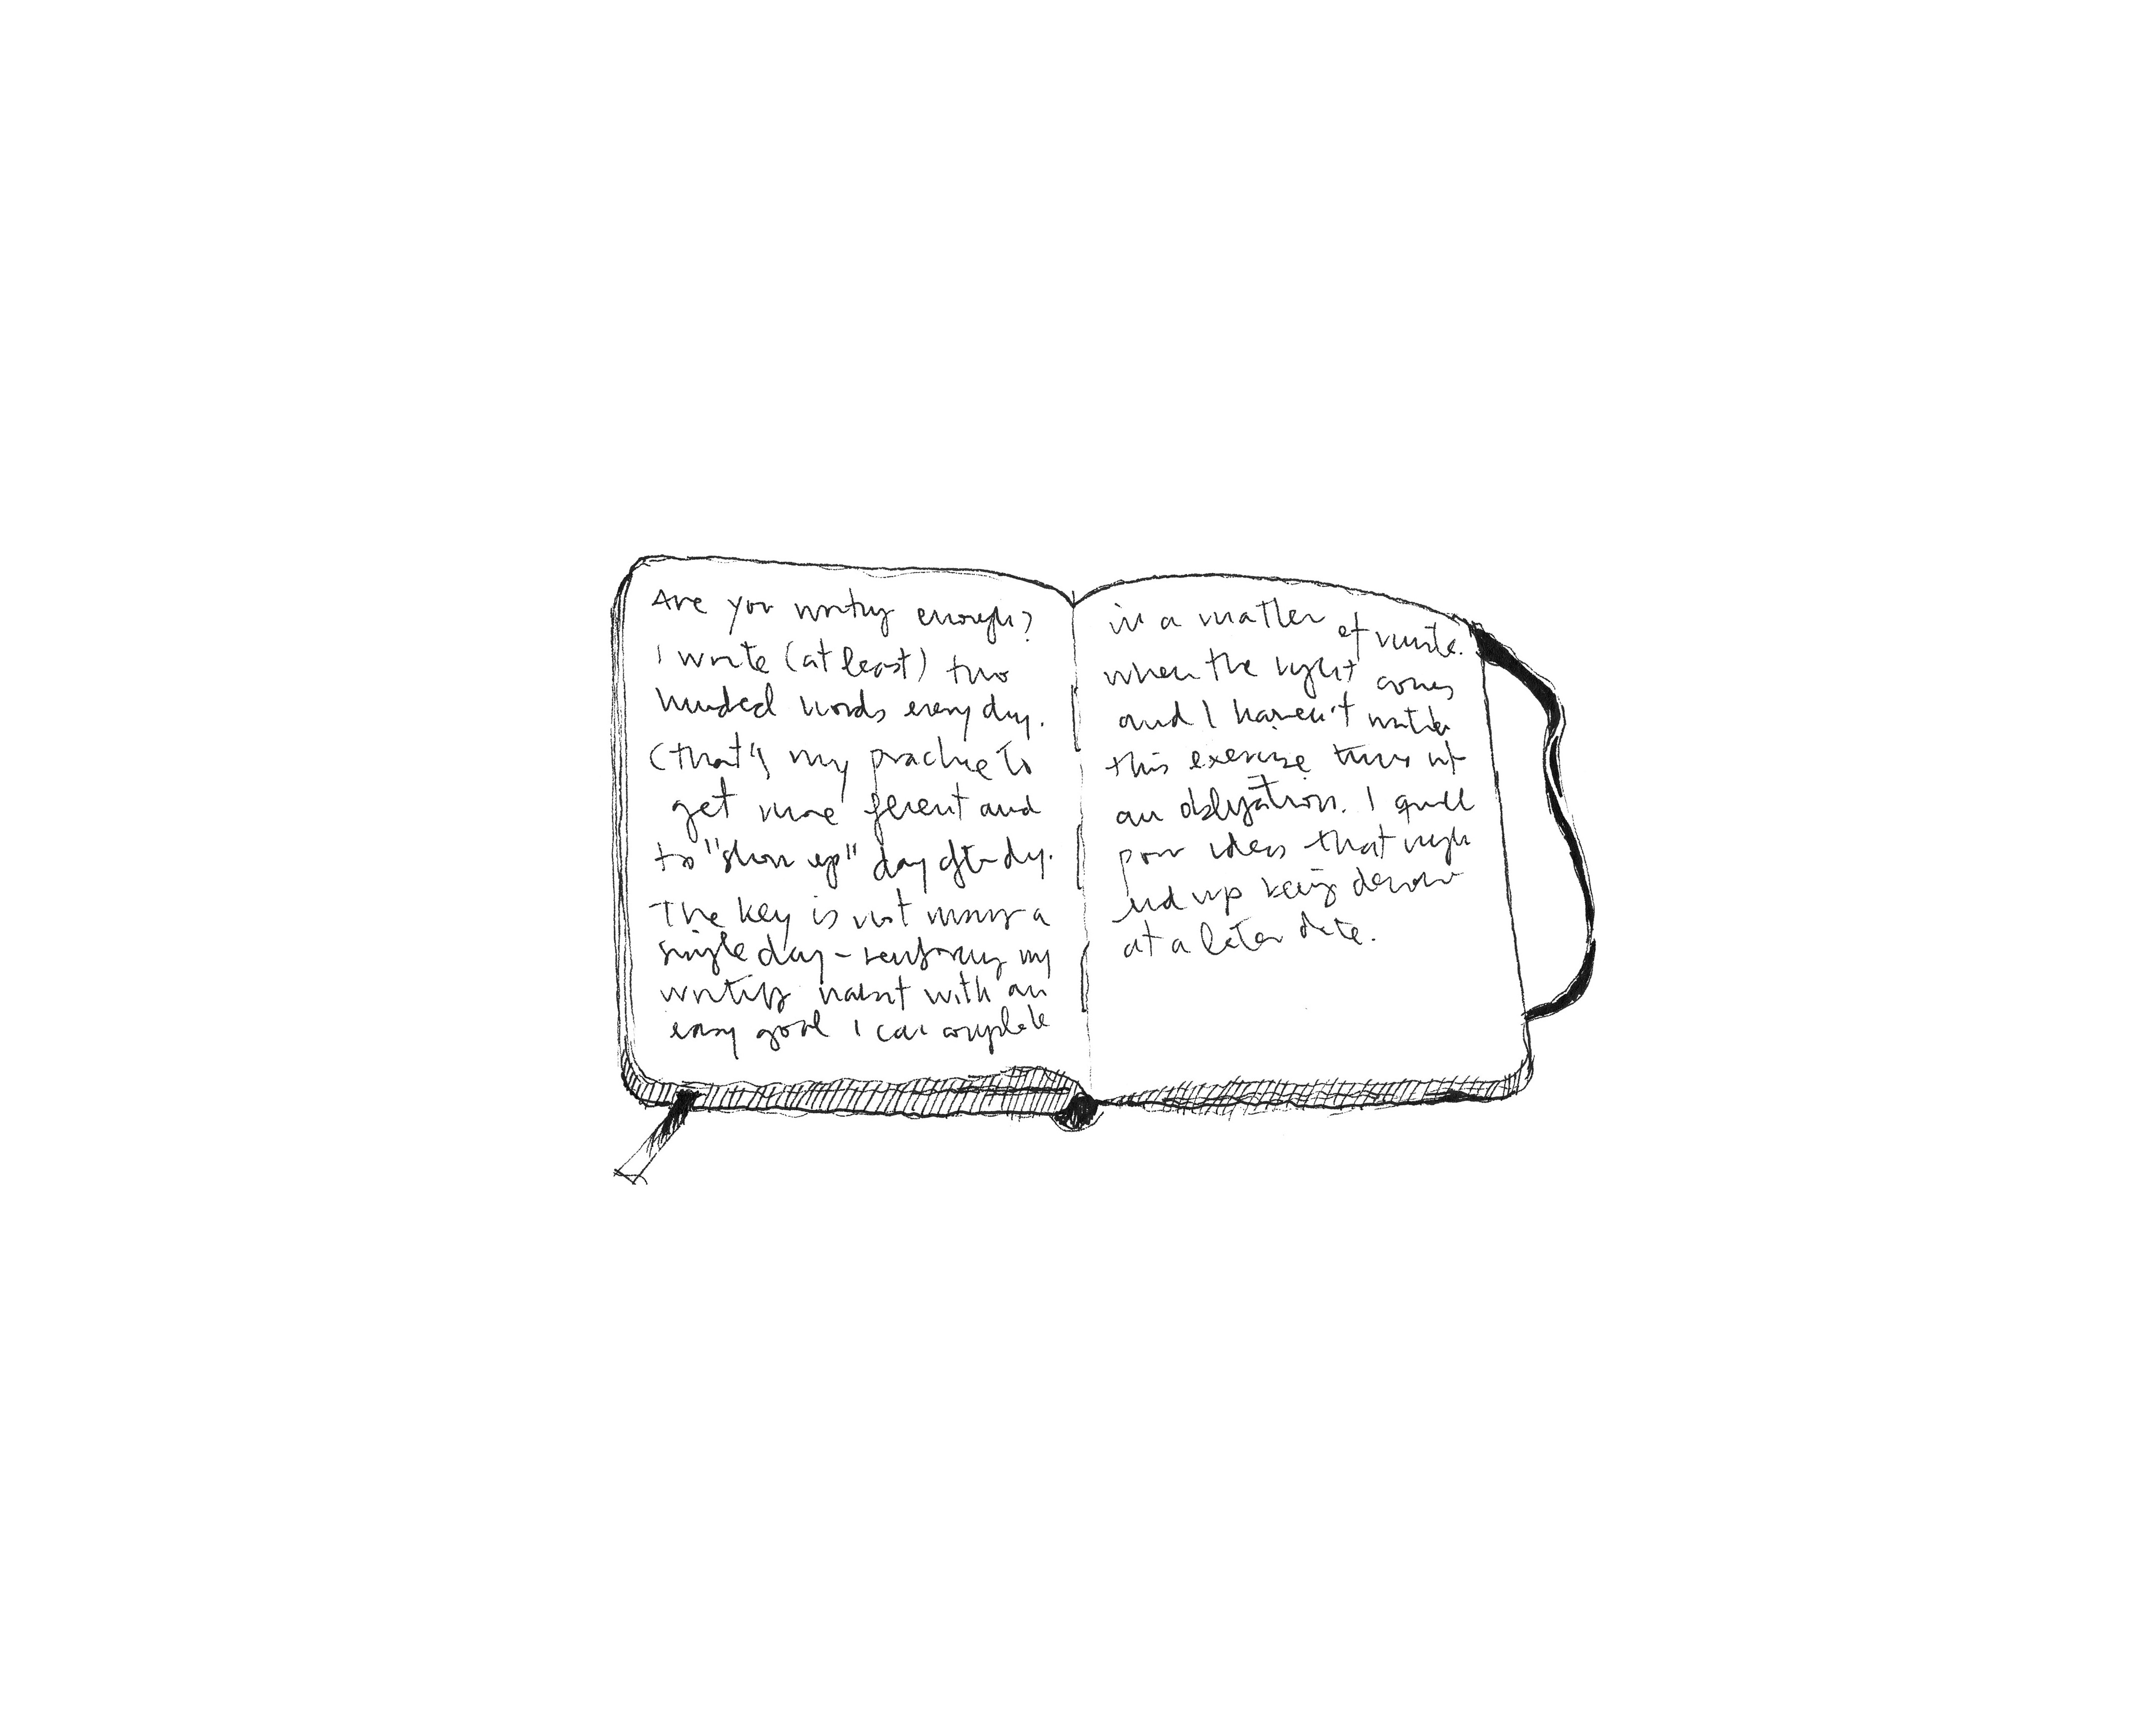 Are you writing enough?
I write (at least) two
hundred words every day.
(that's my practice to
get more fluent and
to "show up" day after day.
The key is not missing a
single day – reinforcing my
writing habit with an
easy goal I can complete
in a matter of minutes.
when the night comes
and I haven't written
this exercise turns into
an obligation. I
poor ideas that might
end up being
at a later date.